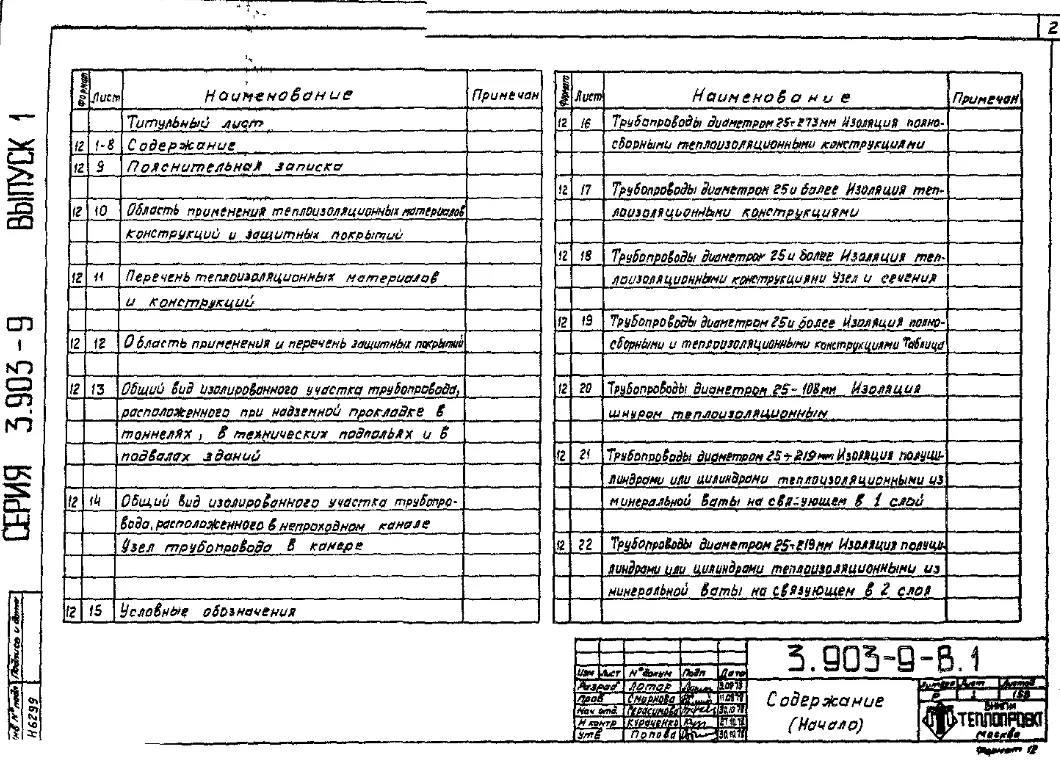 2
СЕРИЯ 3.903-9 ВЫПУСК 1
Формат Лист Наименование Примечан
Титульный лист
12 1-8 Содержание
12 9 Пояснительная записка
12 10 Область применения теплоизоляционных материалов
конструкций и защитных покрытий
12 11 Перечень теплоизоляционных материалов
и конструкций
12 12 Область применения и перечень защитных покрытий
12 13 Общий вид изолированного участка трубопровода,
расположенного при надземной прокладке в
тоннелях, в технических подпольях и в
подвалах зданий
12 14 Общий вид изолированного участка трубопро-
вода, расположенного в непроходном канале
Узел трубопровода в камере
12 15 Условные обозначения
Формат Лист Наименование Примечан
12 16 Трубопроводы диаметром 25÷273мм Изоляция полно-
сборными теплоизоляционными конструкциями
12 17 Трубопроводы диаметром 25 и более Изоляция теп-
лоизоляционными конструкциями
12 18 Трубопроводы диаметром 25 и более Изоляция теп-
лоизоляционными конструкциями Узел и сечения
12 19 Трубопроводы диаметром 25 и более Изоляция полно-
сборными и теплоизоляционными конструкциями Таблица
12 20 Трубопроводы диаметром 25-108мм Изоляция
шнуром теплоизоляционным
12 21 Трубопроводы диаметром 25÷219мм Изоляция полуци-
линдрами или цилиндрами теплоизоляционными из
минеральной ваты на связующем в 1 слой
12 22 Трубопроводы диаметром 25÷219мм Изоляция полуци-
линдрами или цилиндрами теплоизоляционными из
минеральной ваты на связующем в 2 слоя
3.903-9-В.1
Изм Лист N°докум Подп Дата
Разраб Лотар
Пров Смирнова
Нач отд Герасимова 30.10.78
Н контр Куроченко
Утв Попова 30.10.78
Содержание
(Начало)
Лист Листов
Р 1 158
ВНИПИ
ТЕПЛОПРОЕКТ
Москва
Формат 12
Инв N° подл Подпись и дата
Н6299